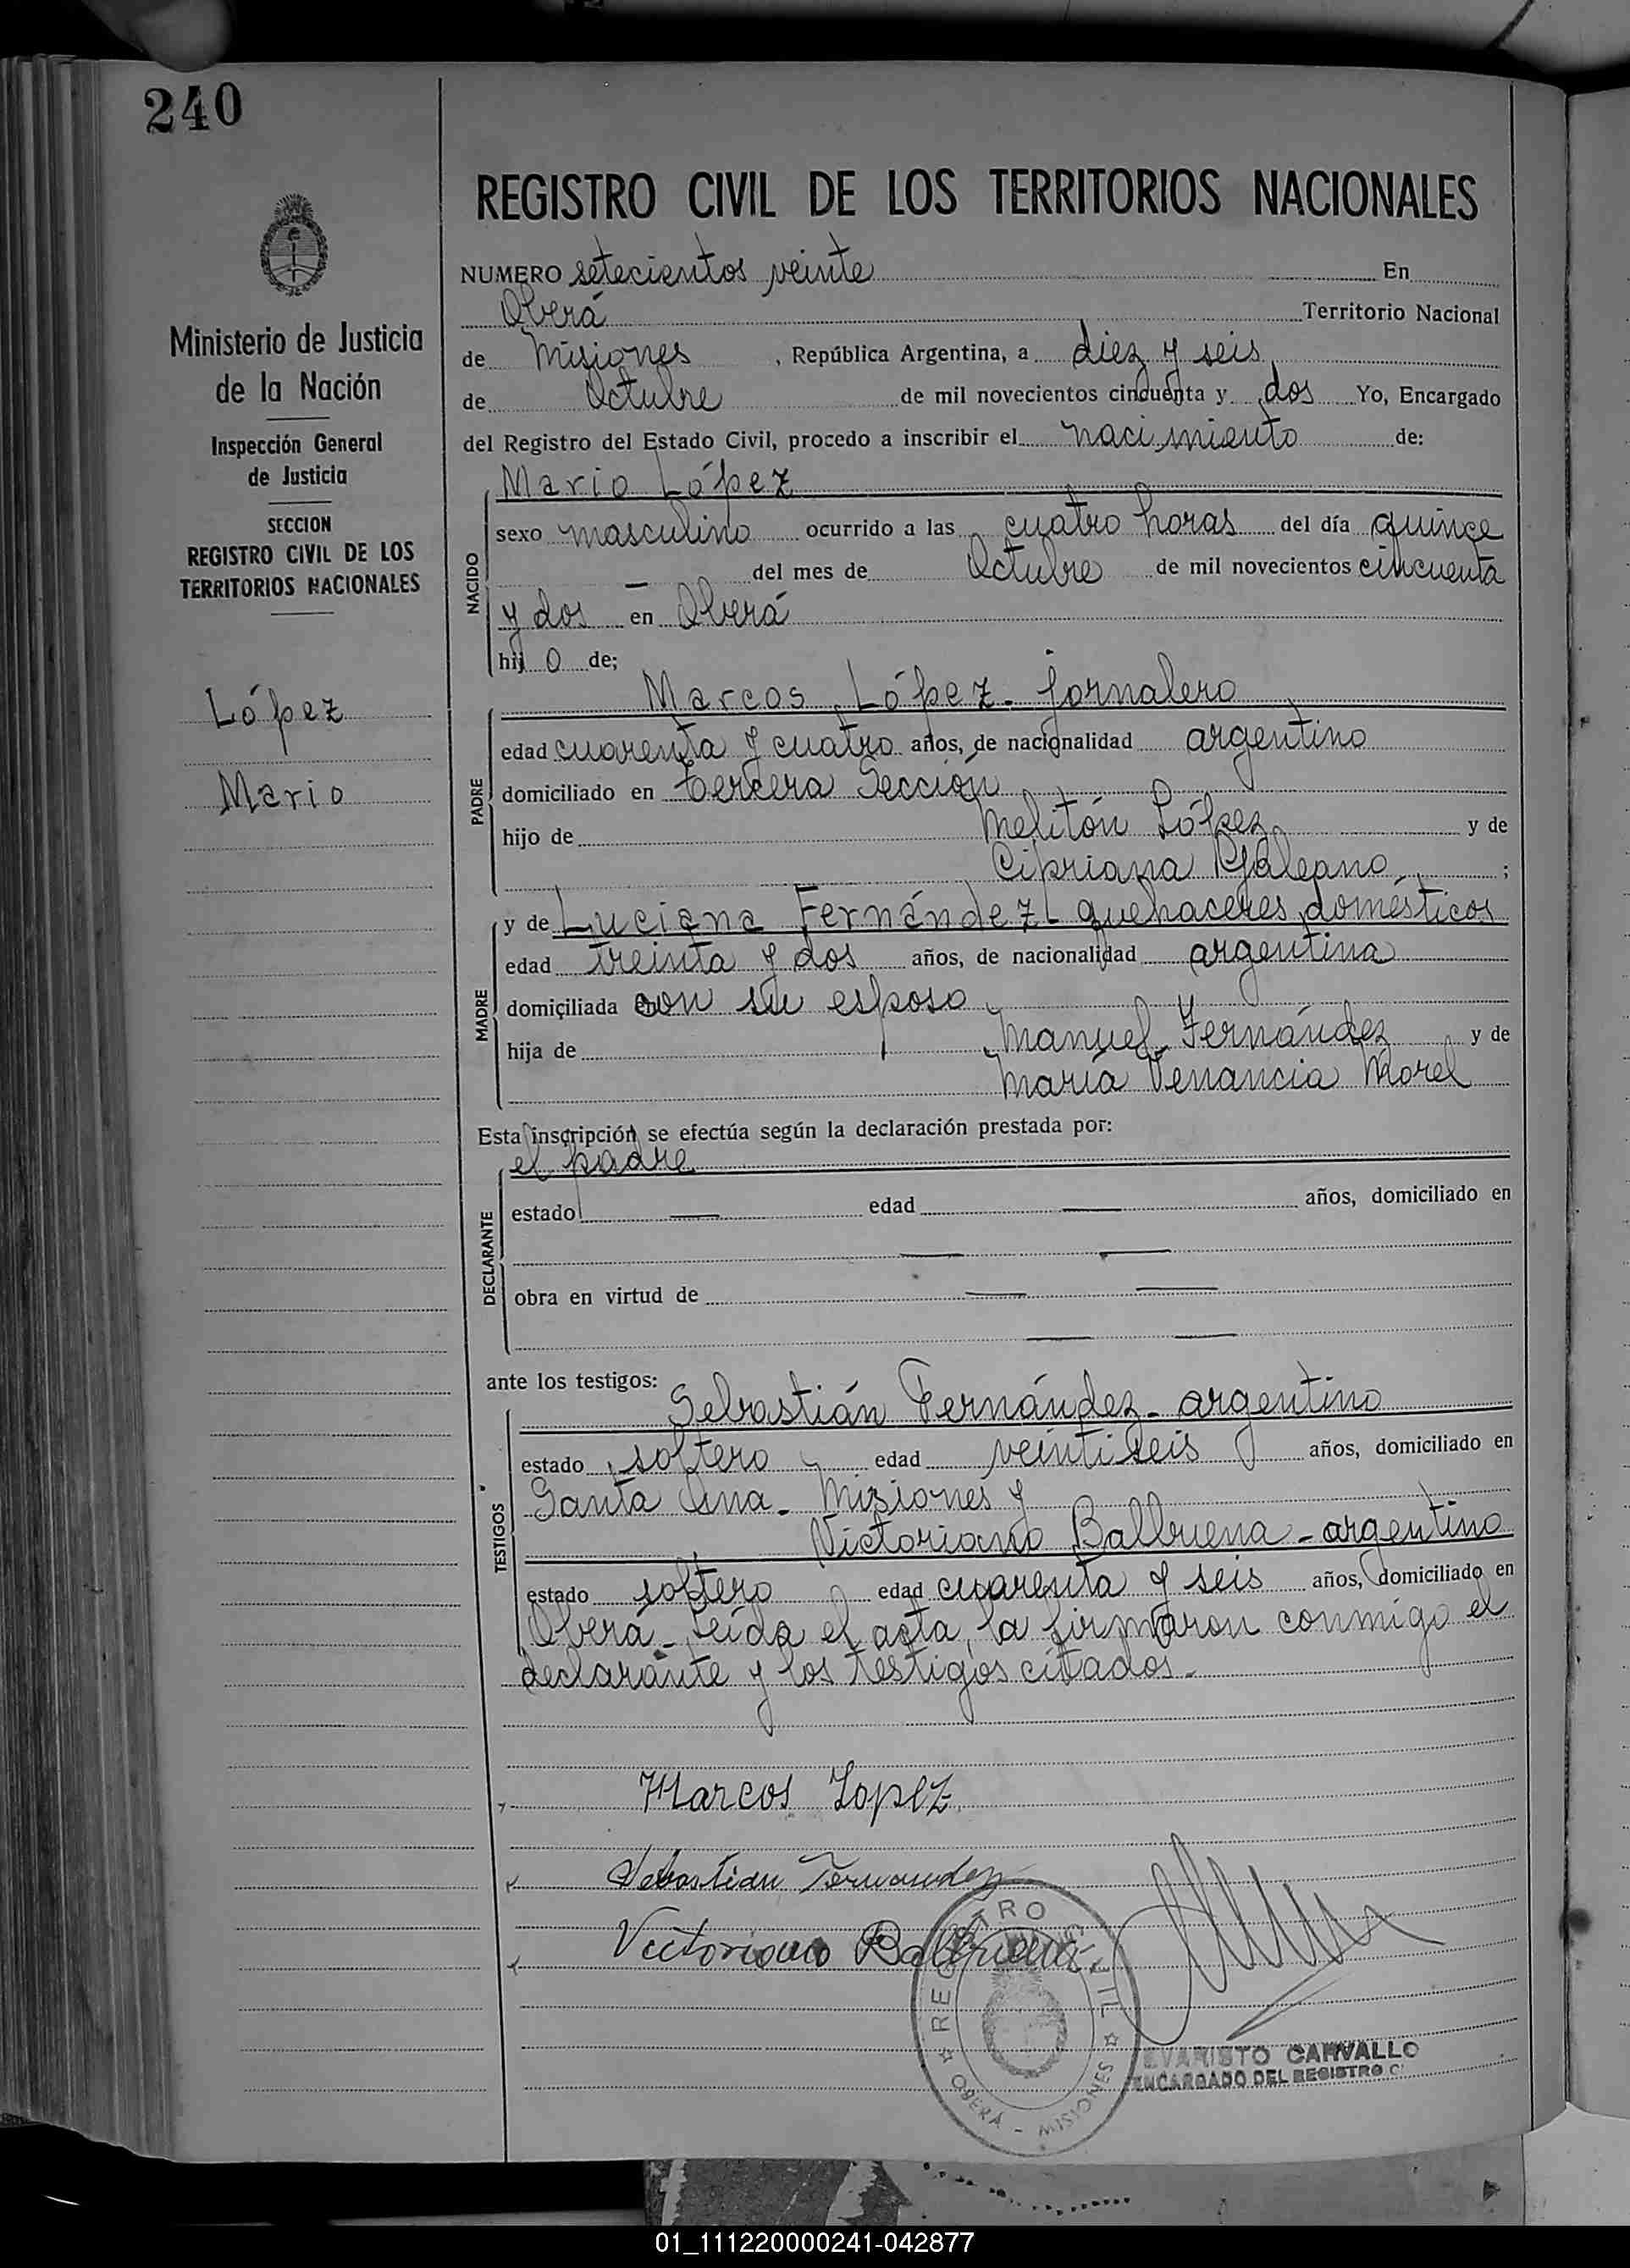 240
Ministerio de Justicia
de la Nación
Inspección General
de Justicia
SECCION
REGISTRO CIVIL DE LOS
TERRITORIOS NACIONALES
López
Mario
REGISTRO CIVIL DE LOS TERRITORIOS NACIONALES
NUMERO setecientos veinte En
Oberá Territorio Nacional
de Misiones , República Argentina, a diez y seis
de Octubre de mil novecientos cincuenta y dos Yo, Encargado
del Registro del Estado Civil, procedo a inscribir el nacimiento de:
Mario López
NACIDO
sexo masculino ocurrido a las cuatro horas del día quince
— del mes de Octubre de mil novecientos cincuenta
y dos en Oberá
hij o de;
Marcos López - jornalero
PADRE
edad cuarenta y cuatro años, de nacionalidad argentino
domiciliado en tercera Sección
hijo de Melitón López y de
Cipriana Galeano ;
y de Luciana Fernández - quehaceres domésticos
MADRE
edad treinta y dos años, de nacionalidad argentina
domiciliada con su esposo
hija de Manuel Fernández y de
María Venancia Morel
Esta inscripción se efectúa según la declaración prestada por:
el padre
DECLARANTE
estado — edad — años, domiciliado en
— —
obra en virtud de — —
— —
ante los testigos:
Sebastián Fernández - argentino
TESTIGOS
estado soltero edad veintiseis años, domiciliado en
Santa Ana - Misiones y
Victoriano Balbuena - argentino
estado soltero edad cuarenta y seis años, domiciliado en
Oberá - Leída el acta, la firmaron conmigo el
declarante y los testigos citados.
Marcos Lopez
Sebastian Fernandez
Victoriano Balbuena
REGISTRO CIVIL
OBERÁ - MISIONES
EVARISTO CARVALLO
ENCARGADO DEL REGISTRO C
01_111220000241-042877